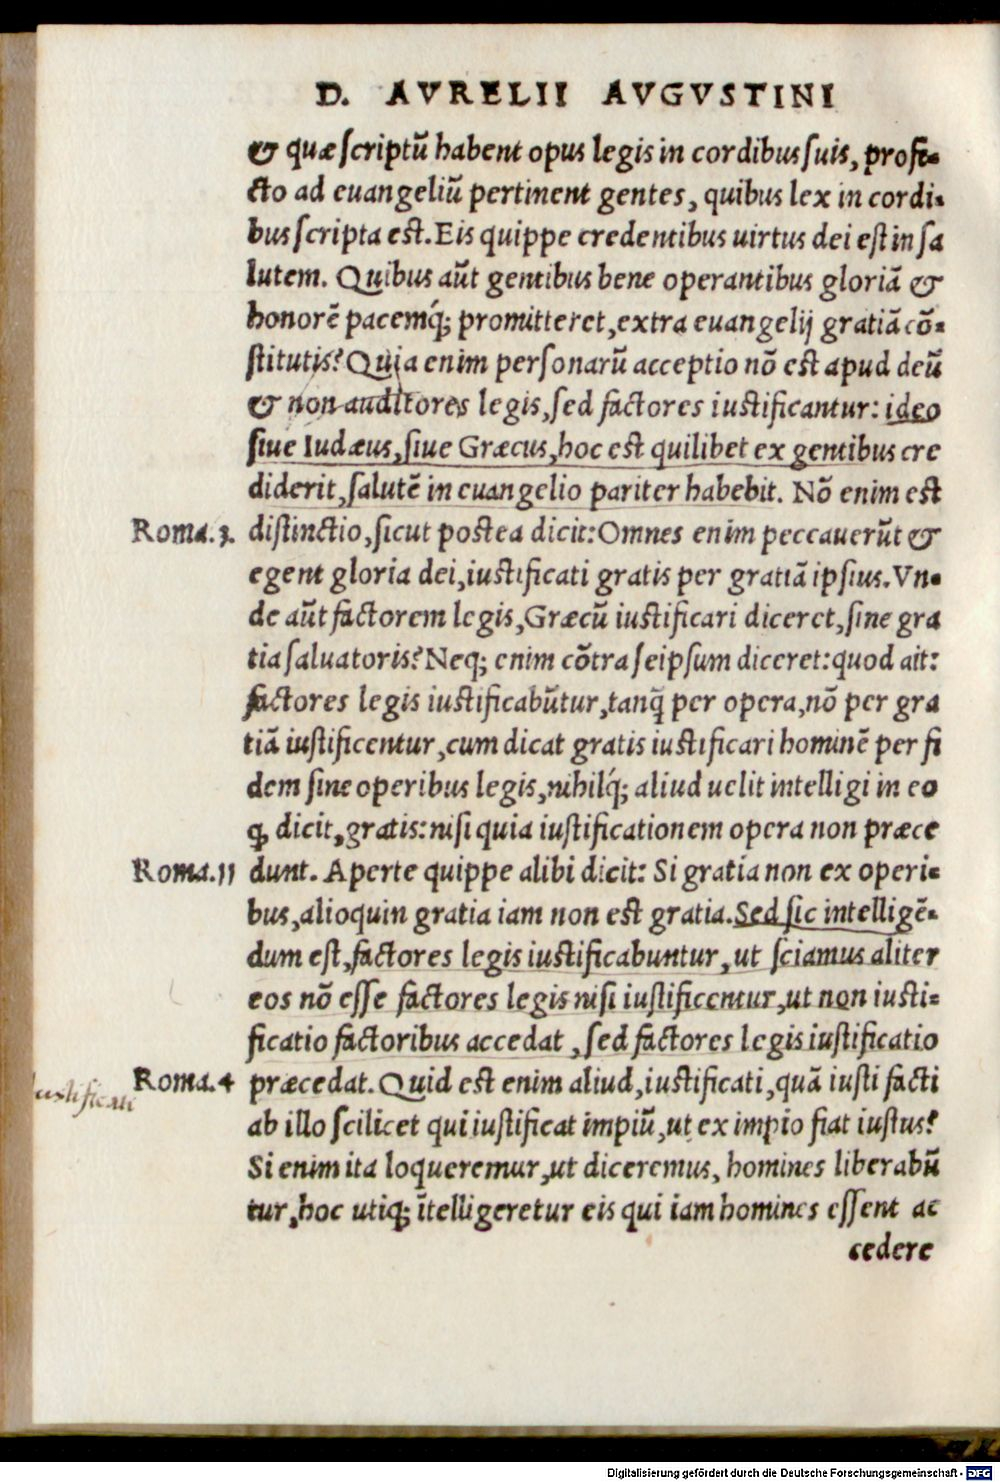 D. AVRELII AVGVSTINI
& quæ scriptũ habent opus legis in cordibus suis, profe-
cto ad euangeliũ pertinent gentes, quibus lex in cordi-
bus scripta est. Eis quippe credentibus uirtus dei est in sa
lutem. Quibus aũt gentibus bene operantibus gloriã &
honorẽ pacemq́; promitteret, extra euangelij gratiã cõ-
stitutis? Quia enim personarũ acceptio nõ est apud deũ
& non auditores legis, sed factores iustificantur: ideo
siue Iudæus, siue Græcus, hoc est quilibet ex gentibus cre
diderit, salutẽ in euangelio pariter habebit. Nõ enim est
Roma.3. distinctio, sicut postea dicit: Omnes enim peccauerũt &
egent gloria dei, iustificati gratis per gratiã ipsius. Vn-
de aũt factorem legis, Græcũ iustificari diceret, sine gra
tia saluatoris? Neq; enim cõtra seipsum diceret: quod ait:
factores legis iustificabũtur, tanq̃ per opera, nõ per gra
tiã iustificentur, cum dicat gratis iustificari hominẽ per fi
dem sine operibus legis, nihilq́; aliud uelit intelligi in eo
ꝙ dicit, gratis: nisi quia iustificationem opera non præce
Roma.11 dunt. Aperte quippe alibi dicit: Si gratia non ex operi-
bus, alioquin gratia iam non est gratia. Sed sic intelligẽ-
dum est, factores legis iustificabuntur, ut sciamus aliter
eos nõ esse factores legis nisi iustificentur, ut non iusti-
ficatio factoribus accedat, sed factores legis iustificatio
Roma.4 præcedat. Quid est enim aliud, iustificati, quã iusti facti
iustificati
ab illo scilicet qui iustificat impiũ, ut ex impio fiat iustus?
Si enim ita loqueremur, ut diceremus, homines liberabũ
tur, hoc utiq; ĩtelligeretur eis qui iam homines essent ac
cedere
Digitalisierung gefördert durch die Deutsche Forschungsgemeinschaft - DFG